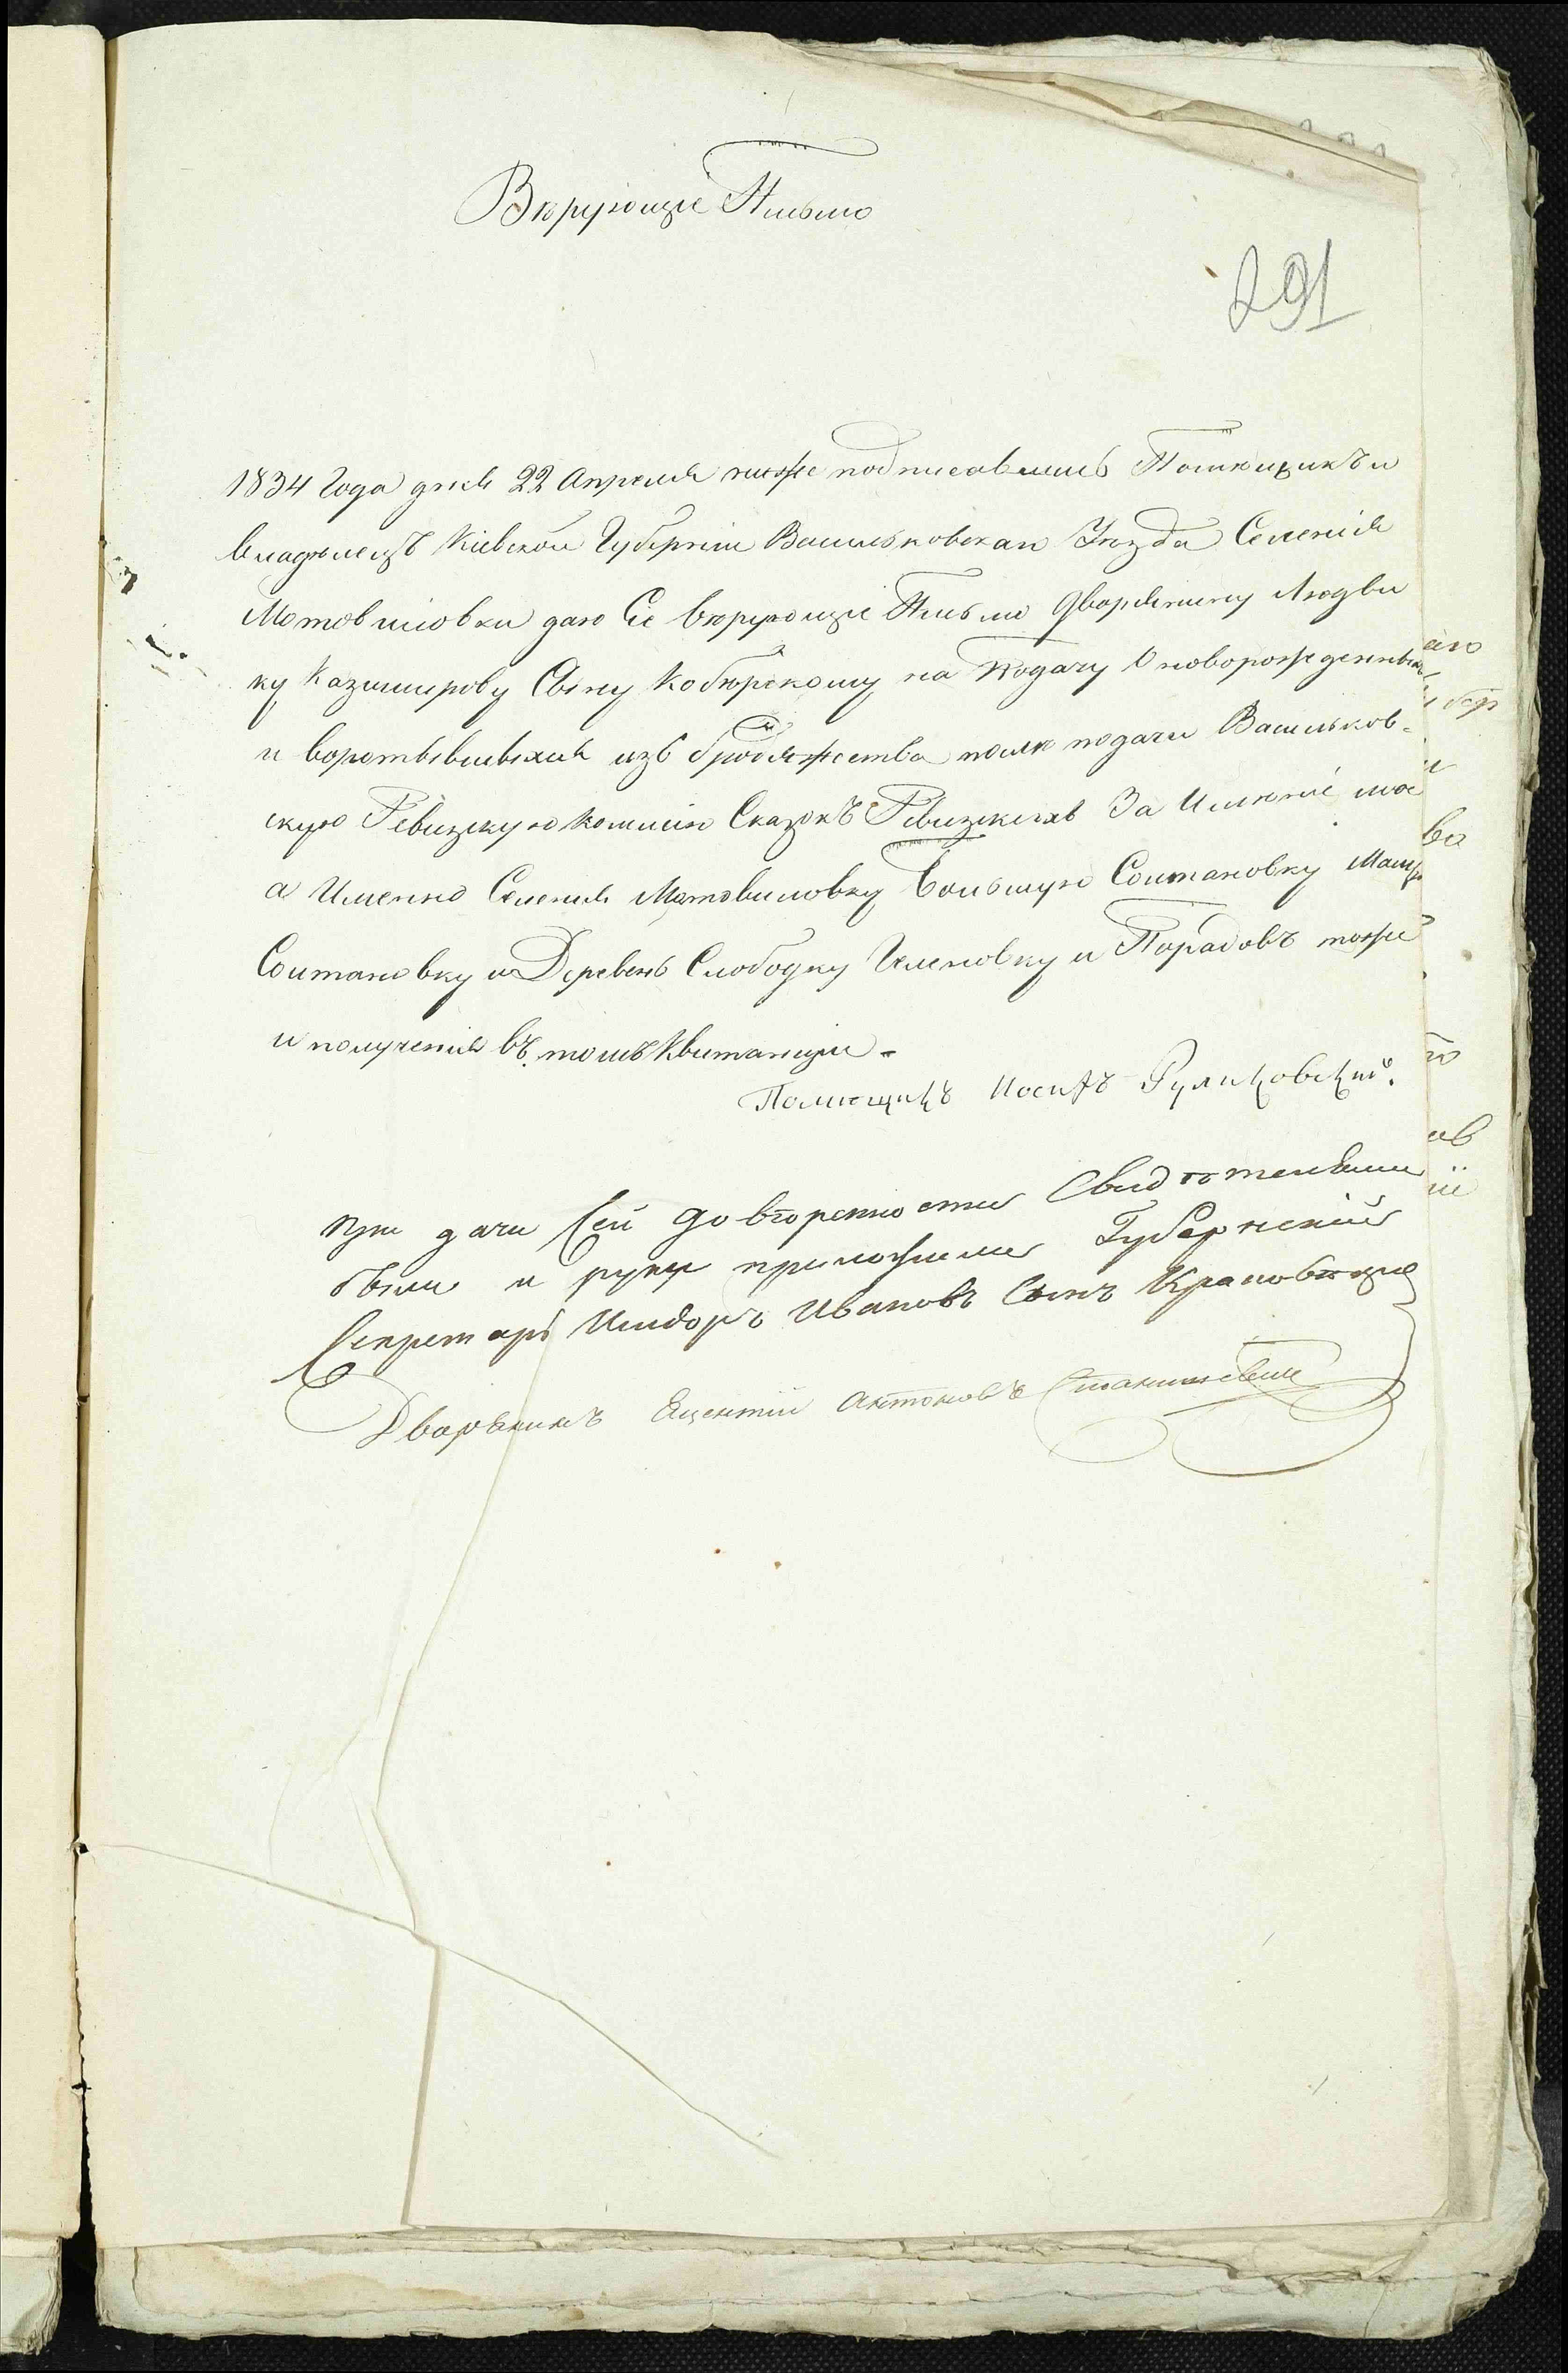 Вѣрующее Письмо
291
1834 Года дня 22 Апреля ниже подписавшись Помѣщикъ и
владѣлецъ Кіевской Губерніи Васильковскаго Уѣзда Селенія
Мотовиловки даю Сіе вѣрующее Письмо Дворянину Людви
ку Казимирову Сыну на Подачу О новорожденныхъ
и воротывшихся изъ бродяжества после подачи Васильков-
скую Ревизскую комисію Сказокъ Ревизскихъ За Именіе мое
а Именно Селенія Мотовиловку Большую Солтановку Малую
Солтановку и Деревень Слободку Геленовку и Порадовъ тоже
и полученія въ томъ Квитанціи -
Помѣщикъ Иосифъ Руликовскій.
При дачи Сей довѣренности Свидѣтелями
были и руку приложили Губернскій
Секретарь Исидоръ Ивановъ Сынъ
Дворянинъ Антоновъ